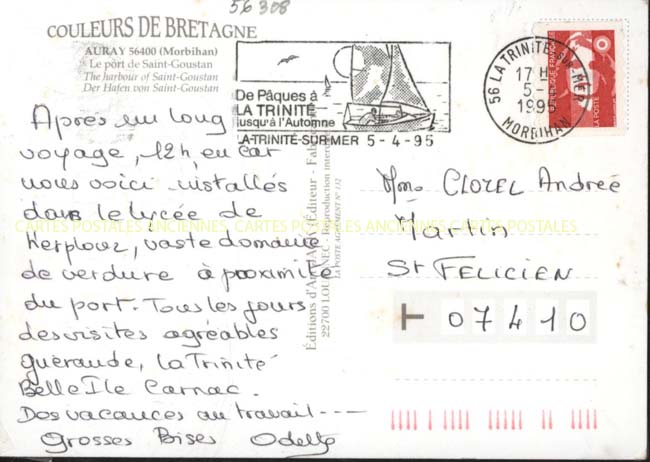 56 308
COULEURS DE BRETAGNE
AURAY 56400 (Morbihan)
Le port de Saint-Goustan
The harbour of Saint-Goustan
Der Hafen von Saint-Goustan
De Pâques à
LA TRINITÉ
jusqu'à l'Automne
LA-TRINITÉ-SUR-MER 5-4-95
56 LA TRINITÉ SUR MER
17 H
5-
199
MORBIHAN
RÉPUBLIQUE FRANÇAISE
LA POSTE
Après un long
voyage, 12h, en car
nous voici installés
dans le lycée de
Kerplouz, vaste domaine
de verdure à proximité
du port. Tous les jours
des visites agréables
guérande, la Trinité
Belle Ile Carnac.
Dos vacances au travail ---
Grosses Bises Odette
Éditions d'Art JACK Éditeur - Fab
22700 LOUANNEC - Reproduction interd
LA POSTE AGREMENT N° 132
Mme CLOZEL Andrée
Martin
St FELICIEN
07410
CARTES POSTALES ANCIENNES CARTES POSTALES ANCIENNES CARTES POSTALES